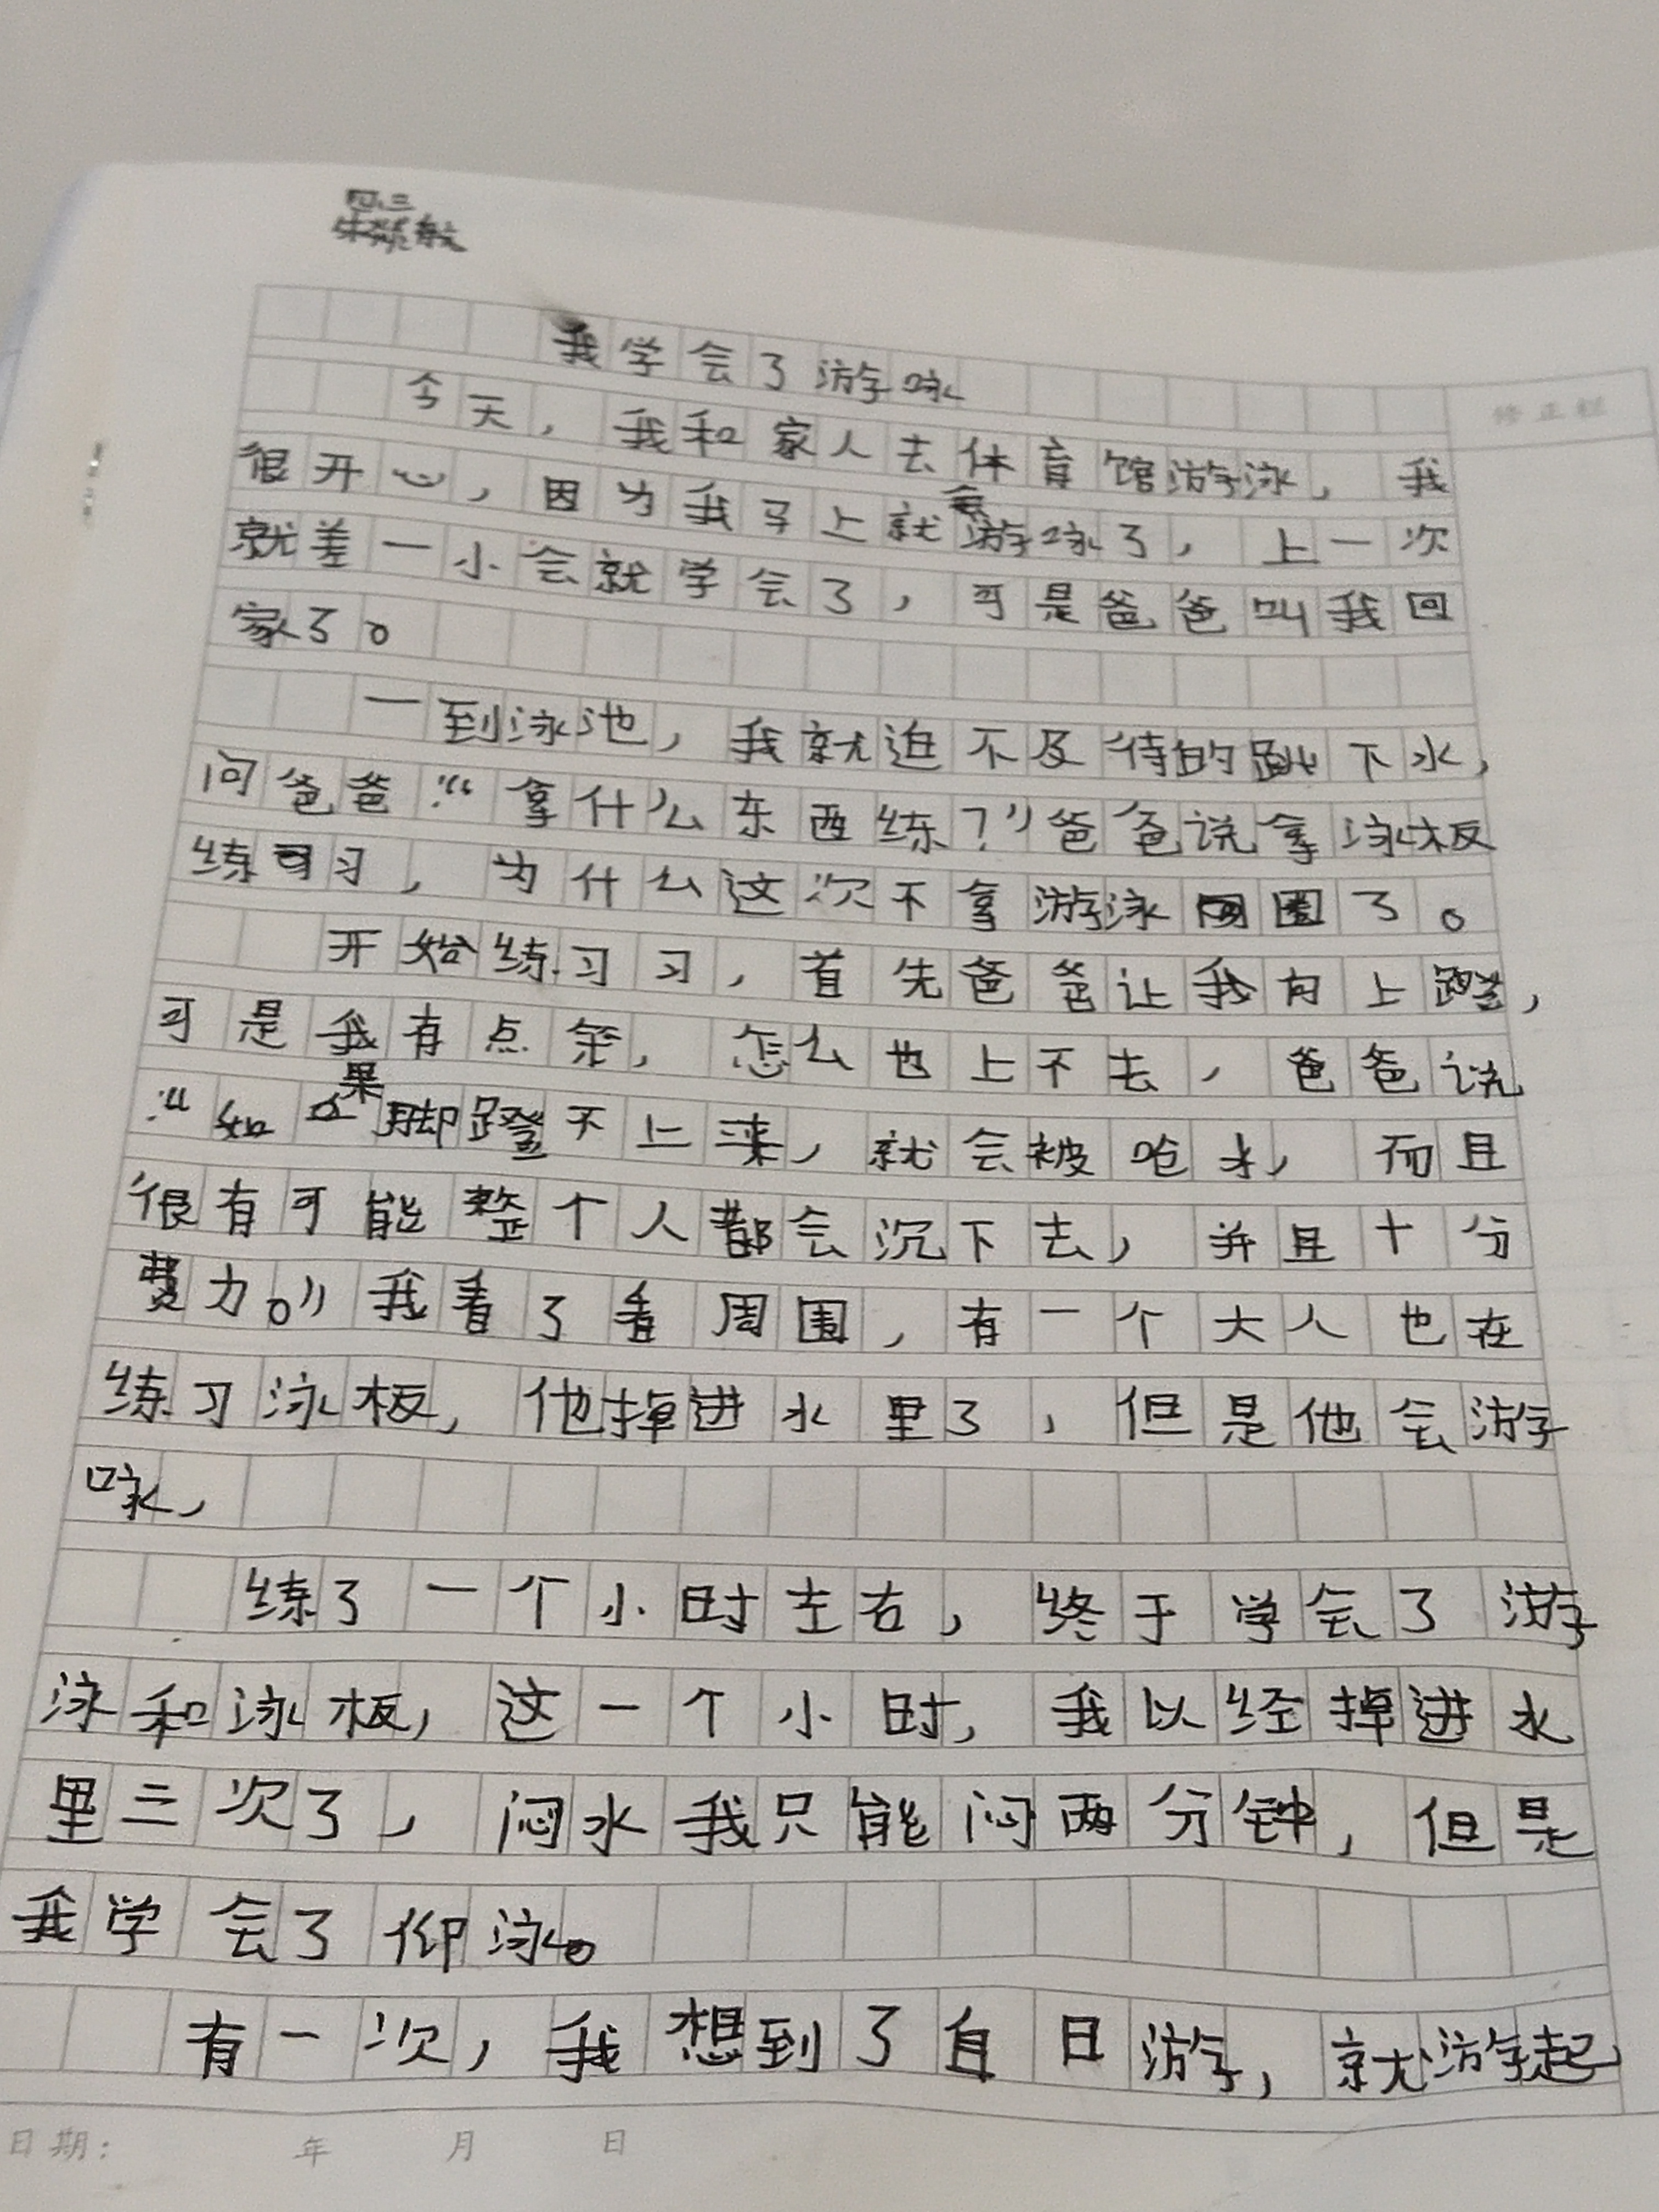 四、三
我学会了游咏
修正栏
今天，我和家人去体育馆游泳，我
很开心，因为我马上就会游咏了，上一次
就差一小会就学会了，可是爸爸叫我回
家了。
一到泳池，我就迫不及待的跳下水，
问爸爸：“拿什么东西练？”爸爸说拿泳板
练习，为什么这次不拿游泳圈了。
开始练习习，首先爸爸让我向上蹬，
可是我有点笨，怎么也上不去，爸爸说
：“如果脚蹬不上来，就会被呛水，而且
很有可能整个人都会沉下去，并且十分
费力。”我看了看周围，有一个大人也在
练习泳板，他掉进水里了，但是他会游
咏，
练了一个小时左右，终于学会了游
泳和泳板，这一个小时，我以经掉进水
里三次了，闷水我只能闷两分钟，但是
我学会了仰泳。
有一次，我想到了自日游，就游起
日期： 年 月 日